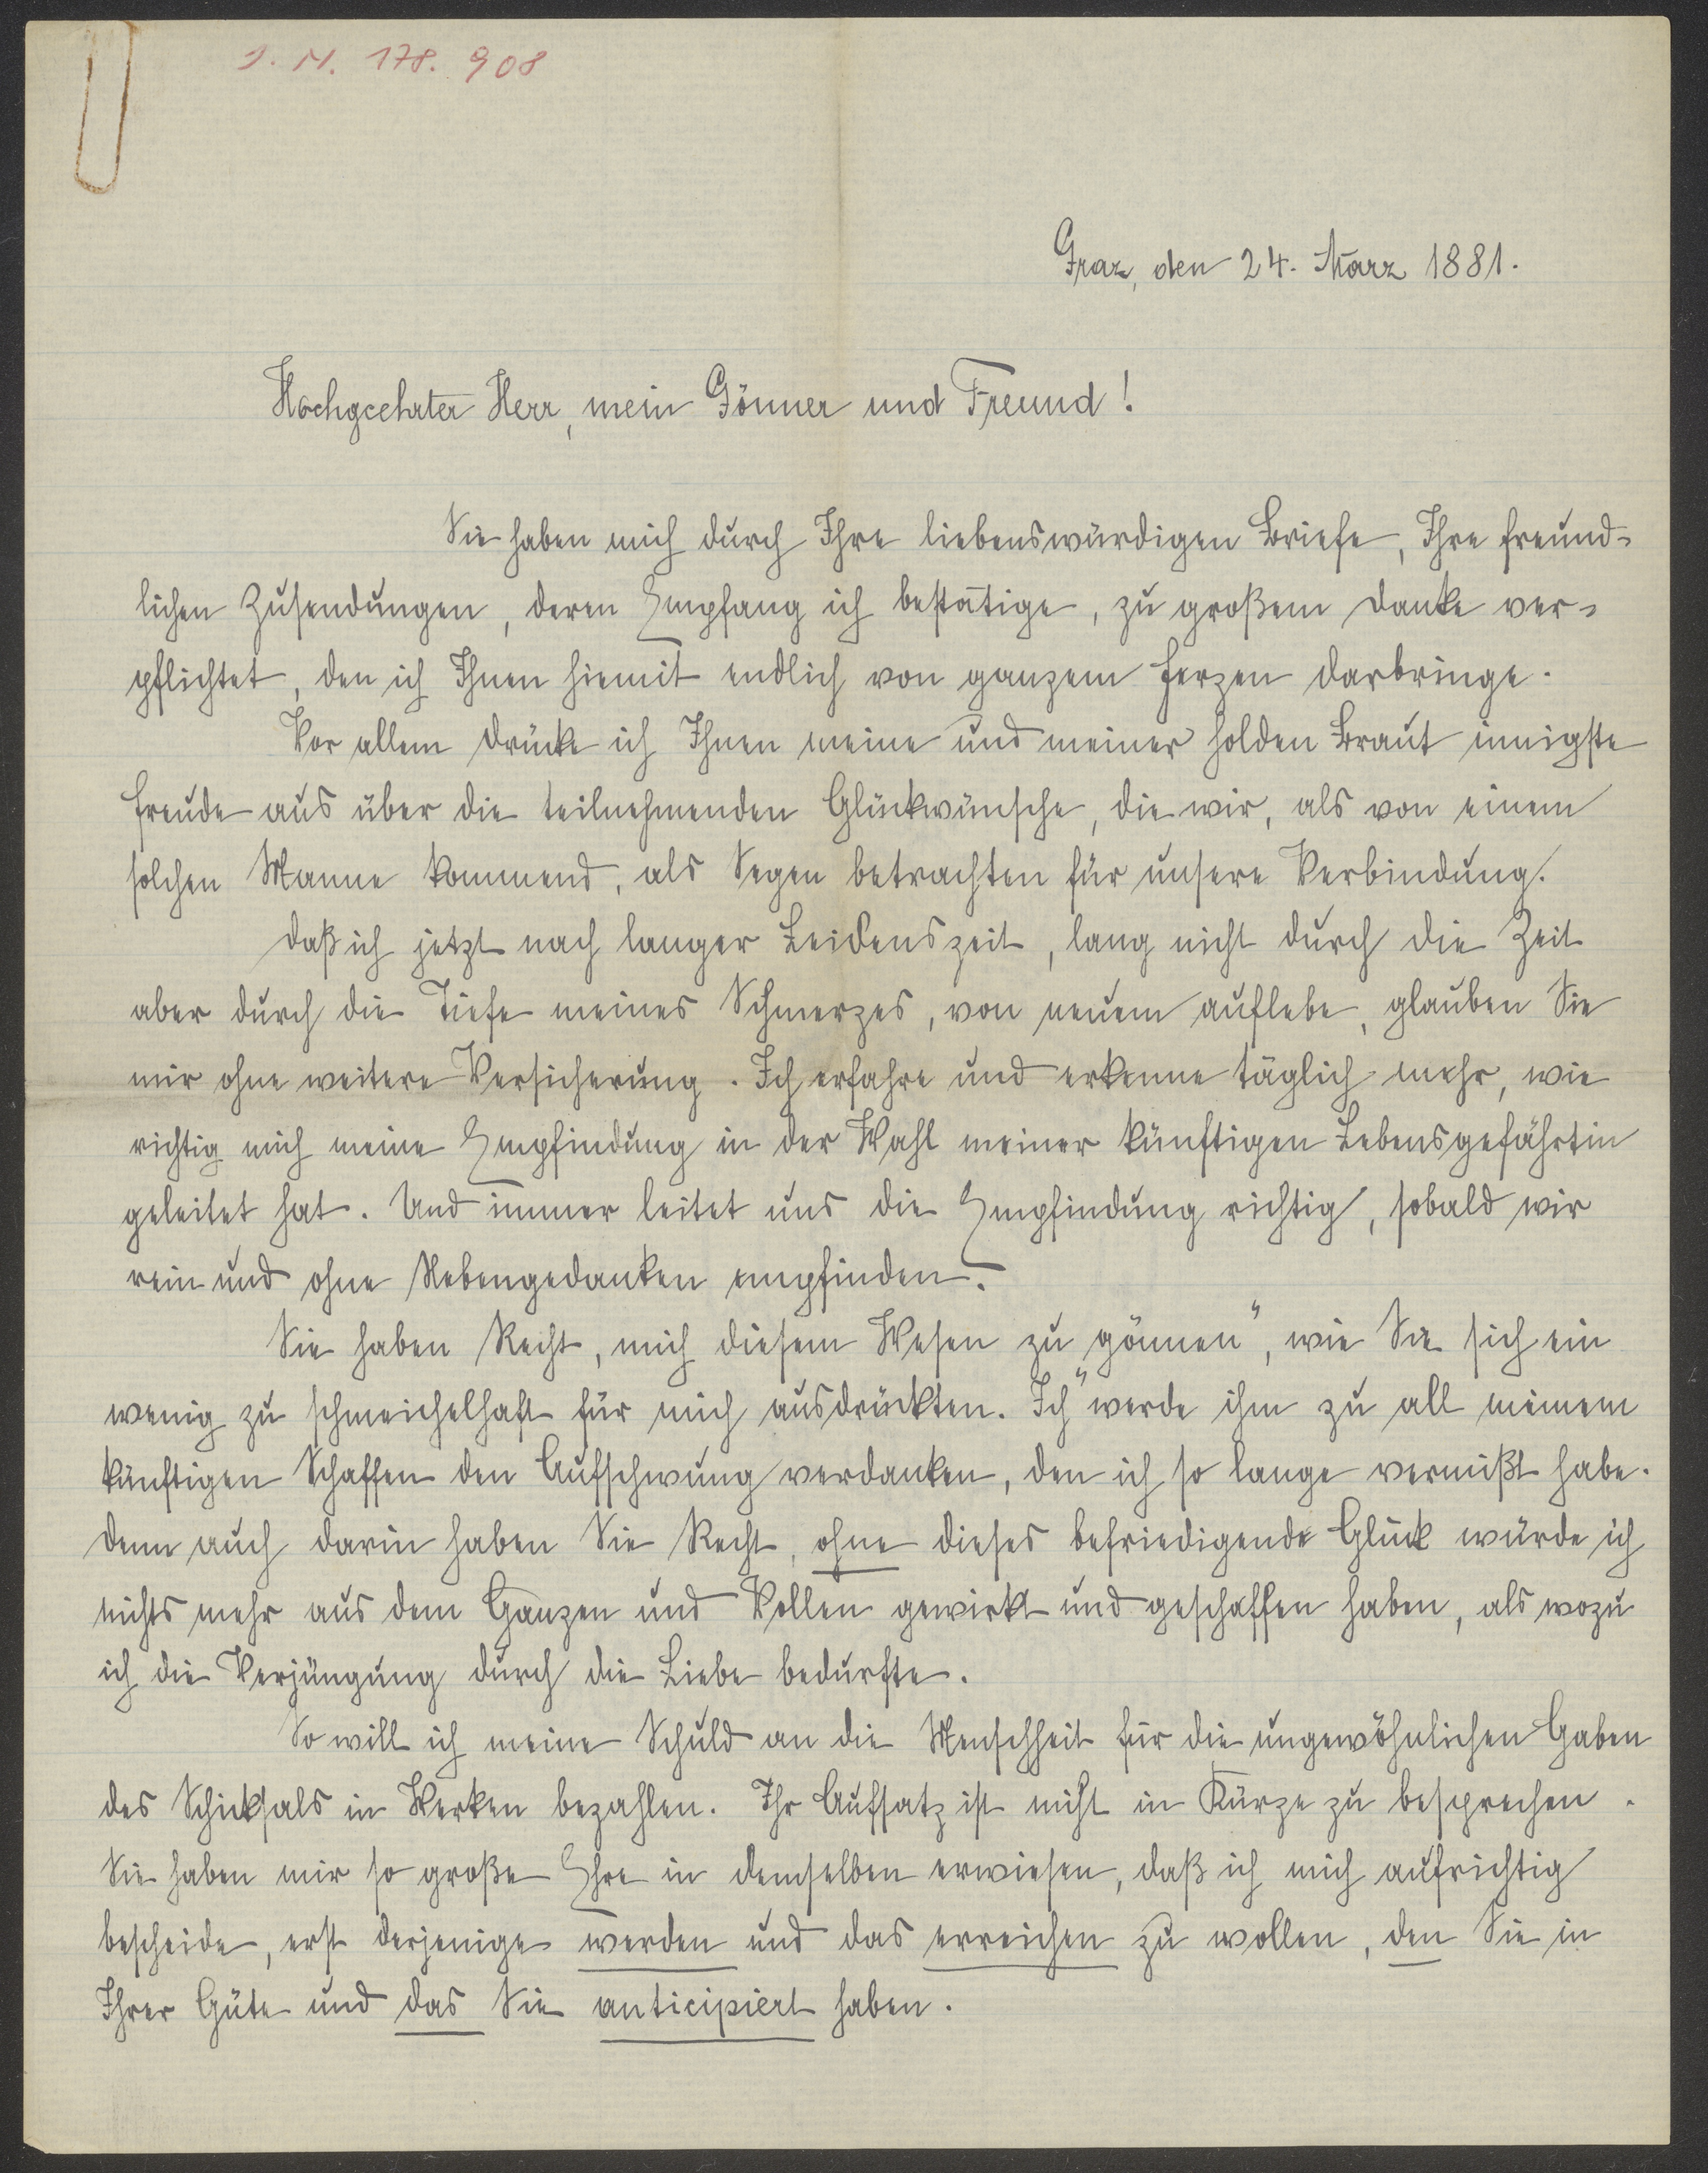 J. N. 178.908
Graz, den 24. März 1881.
Hochgeehrter Herr, mein Gönner und Freund!
Sie haben mich durch Ihre liebenswürdigen Briefe, Ihre freund-
lichen Zusendungen, deren Empfang ich bestätige, zu großem Danke ver-
pflichtet, den ich Ihnen hiemit endlich von ganzem Herzen darbringe.
Vor allem drücke ich Ihnen meine und meiner holden Braut innigste
Freude aus über die teilnehmenden Glückwünsche, die wir, als von einem
solchen Manne kommend, als Segen betrachten für unsere Verbindung.
Daß ich jetzt nach langer Leidenszeit, lang nicht durch die Zeit
aber durch die Tiefe meines Schmerzes, von neuem auflebe, glauben Sie
mir ohne weitere Versicherung. Ich erfahre und erkenne täglich mehr, wie
richtig mich meine Empfindung in der Wahl meiner künftigen Lebensgefährtin
geleitet hat. Und immer leitet uns die Empfindung richtig, sobald wir
rein und ohne Nebengedanken empfinden.
Sie haben Recht, mich diesem Wesen zu gönnen", wie Sie sich ein
wenig zu schmeichelhaft für mich ausdrückten. Ich "werde ihm zu all meinem
künftigen Schaffen den Aufschwung verdanken, den ich so lange vermißt habe.
Denn auch darin haben Sie Recht, ohne dieses befriedigende Glück würde ich
nichts mehr aus dem Ganzen und Vollen gewirkt und geschaffen haben, als wozu
ich die Verjüngung durch die Liebe bedurfte.
So will ich meine Schuld an die Menschheit für die ungewöhnlichen Gaben
des Schicksals in Werken bezahlen. Ihr Aufsatz ist nicht in Kürze zu besprechen.
Sie haben mir so große Ehre in demselben erwiesen, daß ich mich aufrichtig
bescheide, erst derjenige werden und das erreichen zu wollen, den Sie in
Ihrer Güte und das Sie anticipiert haben.